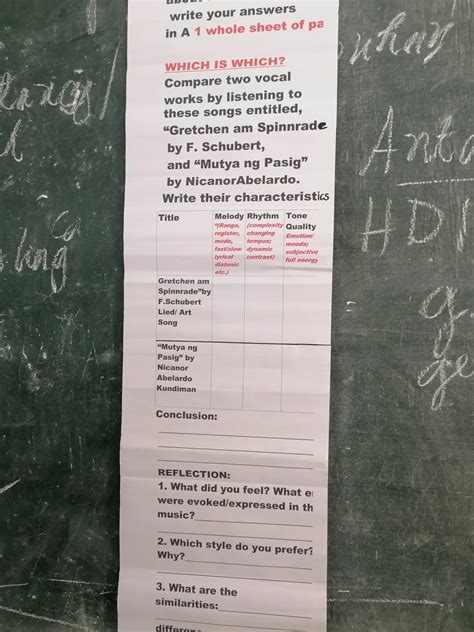 write your answers
in A 1 whole sheet of pa
WHICH IS WHICH?
Compare two vocal
works by listening to
these songs entitled,
"Gretchen am Spinnrade
by F. Schubert,
and "Mutya ng Pasig"
by NicanorAbelardo.
Write their characteristics
Title Melody Rhythm Tone Quality
*(Range, register, mode, fast/slow lyrical diatonic etc.)
(complexity changing tempos; dynamic contrast)
Emotion/ moods; subjective full energy
Gretchen am
Spinnrade"by
F.Schubert
Lied/ Art
Song
"Mutya ng
Pasig" by
Nicanor
Abelardo
Kundiman
Conclusion:
REFLECTION:
1. What did you feel? What e
were evoked/expressed in th
music?
2. Which style do you prefer?
Why?
3. What are the
similarities: